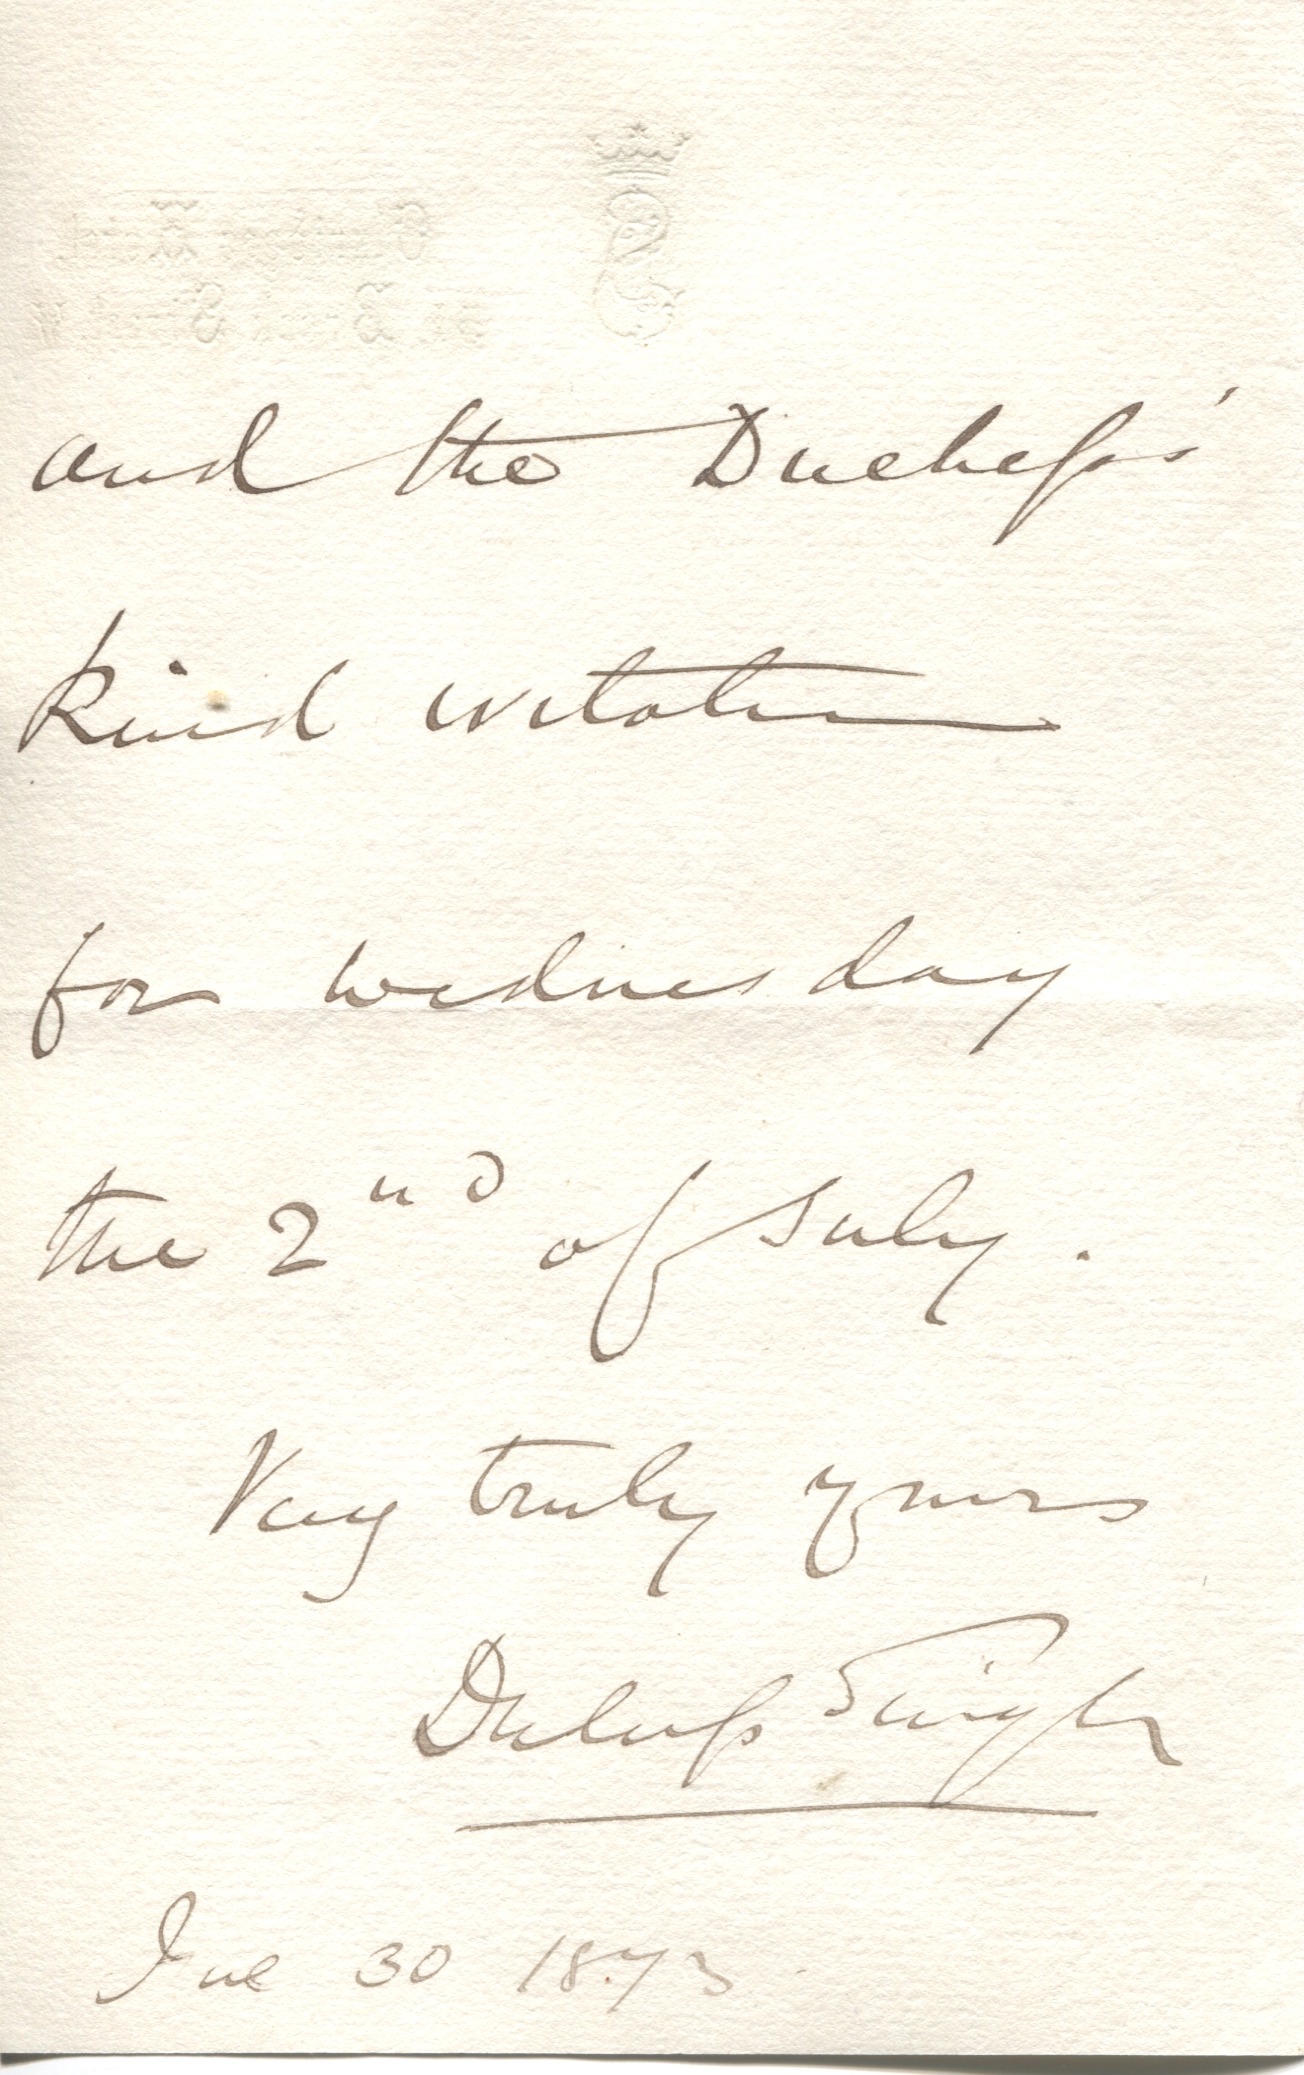 and the Duchess'
kind invitation
for Wednesday
the 2nd of July.
Very truly yours
Duleep Singh
June 30 1873